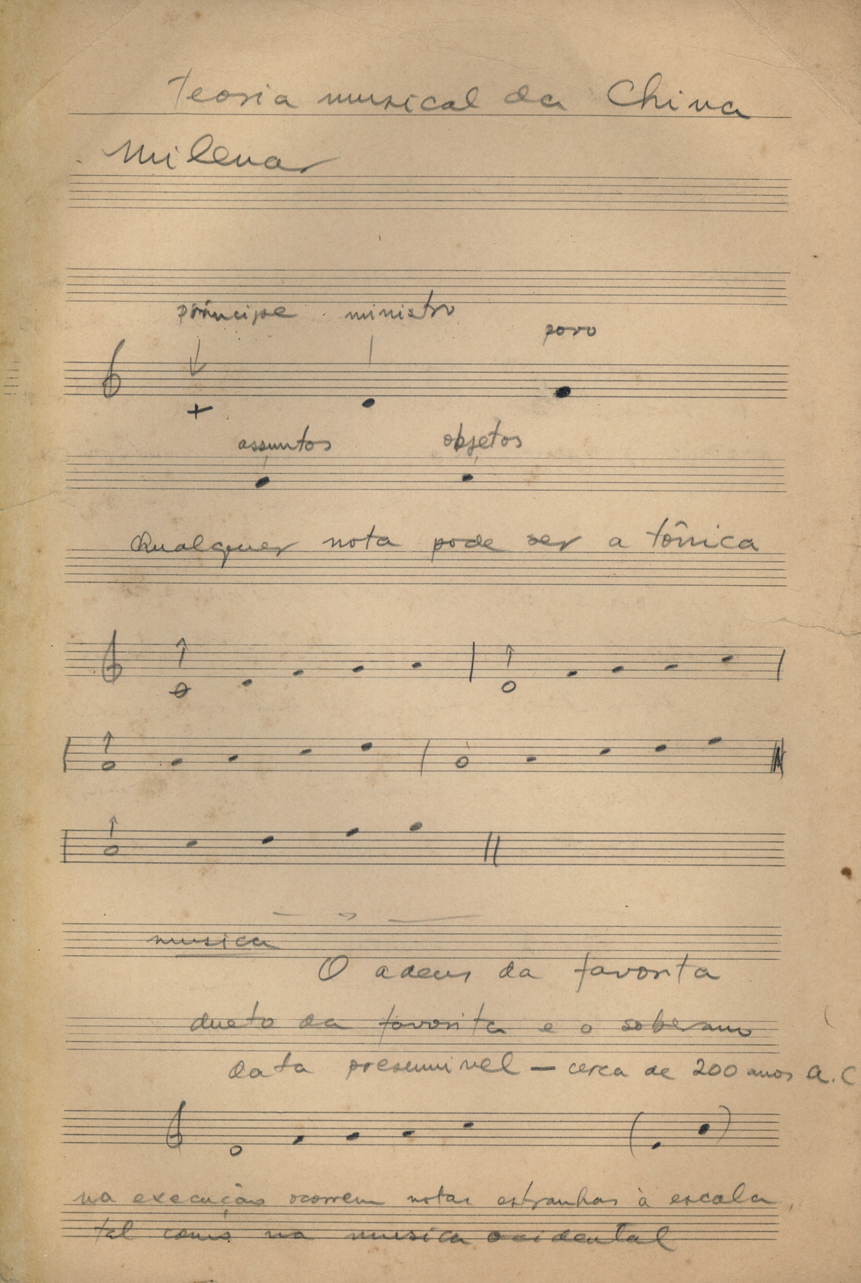 Teoria musical da China
Milenar
príncipe ministro povo
assuntos objetos
Qualquer nota pode ser a tônica
musica
O adeus da favorita
dueto da favorita e o soberano
data presumivel — cerca de 200 anos A.C
na execução ocorrem notas estranhas à escala
tal como na musica ocidental